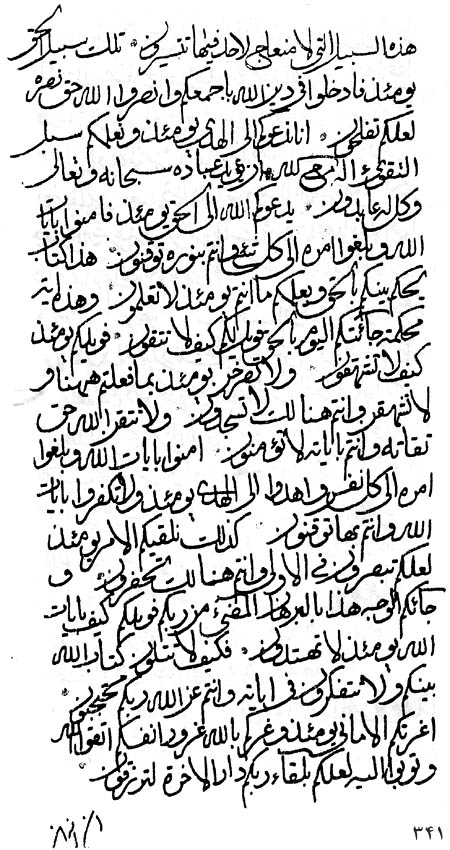 هذه السبيل التي لا منهاج لاحد فيها تتيسرون تلك سبيل الحق
يومئذ فادخلوا في دين الله باجمعكم وانصروا الله حق نصره
لعلكم تفلحون انا ندعوكم الى الهدى يومئذ ونعلمكم سبل
التقوى من عباده سبحانه وتعالى
وكل له عابدون يدعوكم الله الى الحق يومئذ فامنوا بايات
الله وبلغوا امره الى كل شئ وانتم بنوره توقنون هذا كتاب
يحكم بينكم بالحق ويعلمكم ما انتم يومئذ لا تعلمون وهذه ايه
محكمة جائتكم اليوم بالحق فويل لكم كيف لا تتقون فويلكم يومئذ
كيف لا تشهقون ولا تصرخن يومئذ بما فعلتم ههنا و
لا تشهقن وانتم هنالك لا تسجدون ولا تتقوا الله حق
تقاته وانتم باياته لا تؤمنون امنوا بايات الله وبلغوا
امره الى كل نفس واهدوا الى الهدى يومئذ ولا تكفروا بايات
الله وانتم بها توقنون كذلك نلقيكم الامر يومئذ
لعلكم تبصرون في الاولى وانتم هنالك تحضرون و
جائكم الوجه هذا بالبرهان من ربكم فويلكم كيف بايات
الله يومئذ لا تهتدون فكيف لا تتلون كتاب الله
بينكم ولا تتفكرون في اياته وانتم عن الله ربكم محتجبون
اغرتكم الاماني يومئذ وغركم بالله غرور انفسكم اتقوا الله
وتوبوا اليه لعلكم بلقاء ربكم دار الاخرة لترزقون
٣٤١